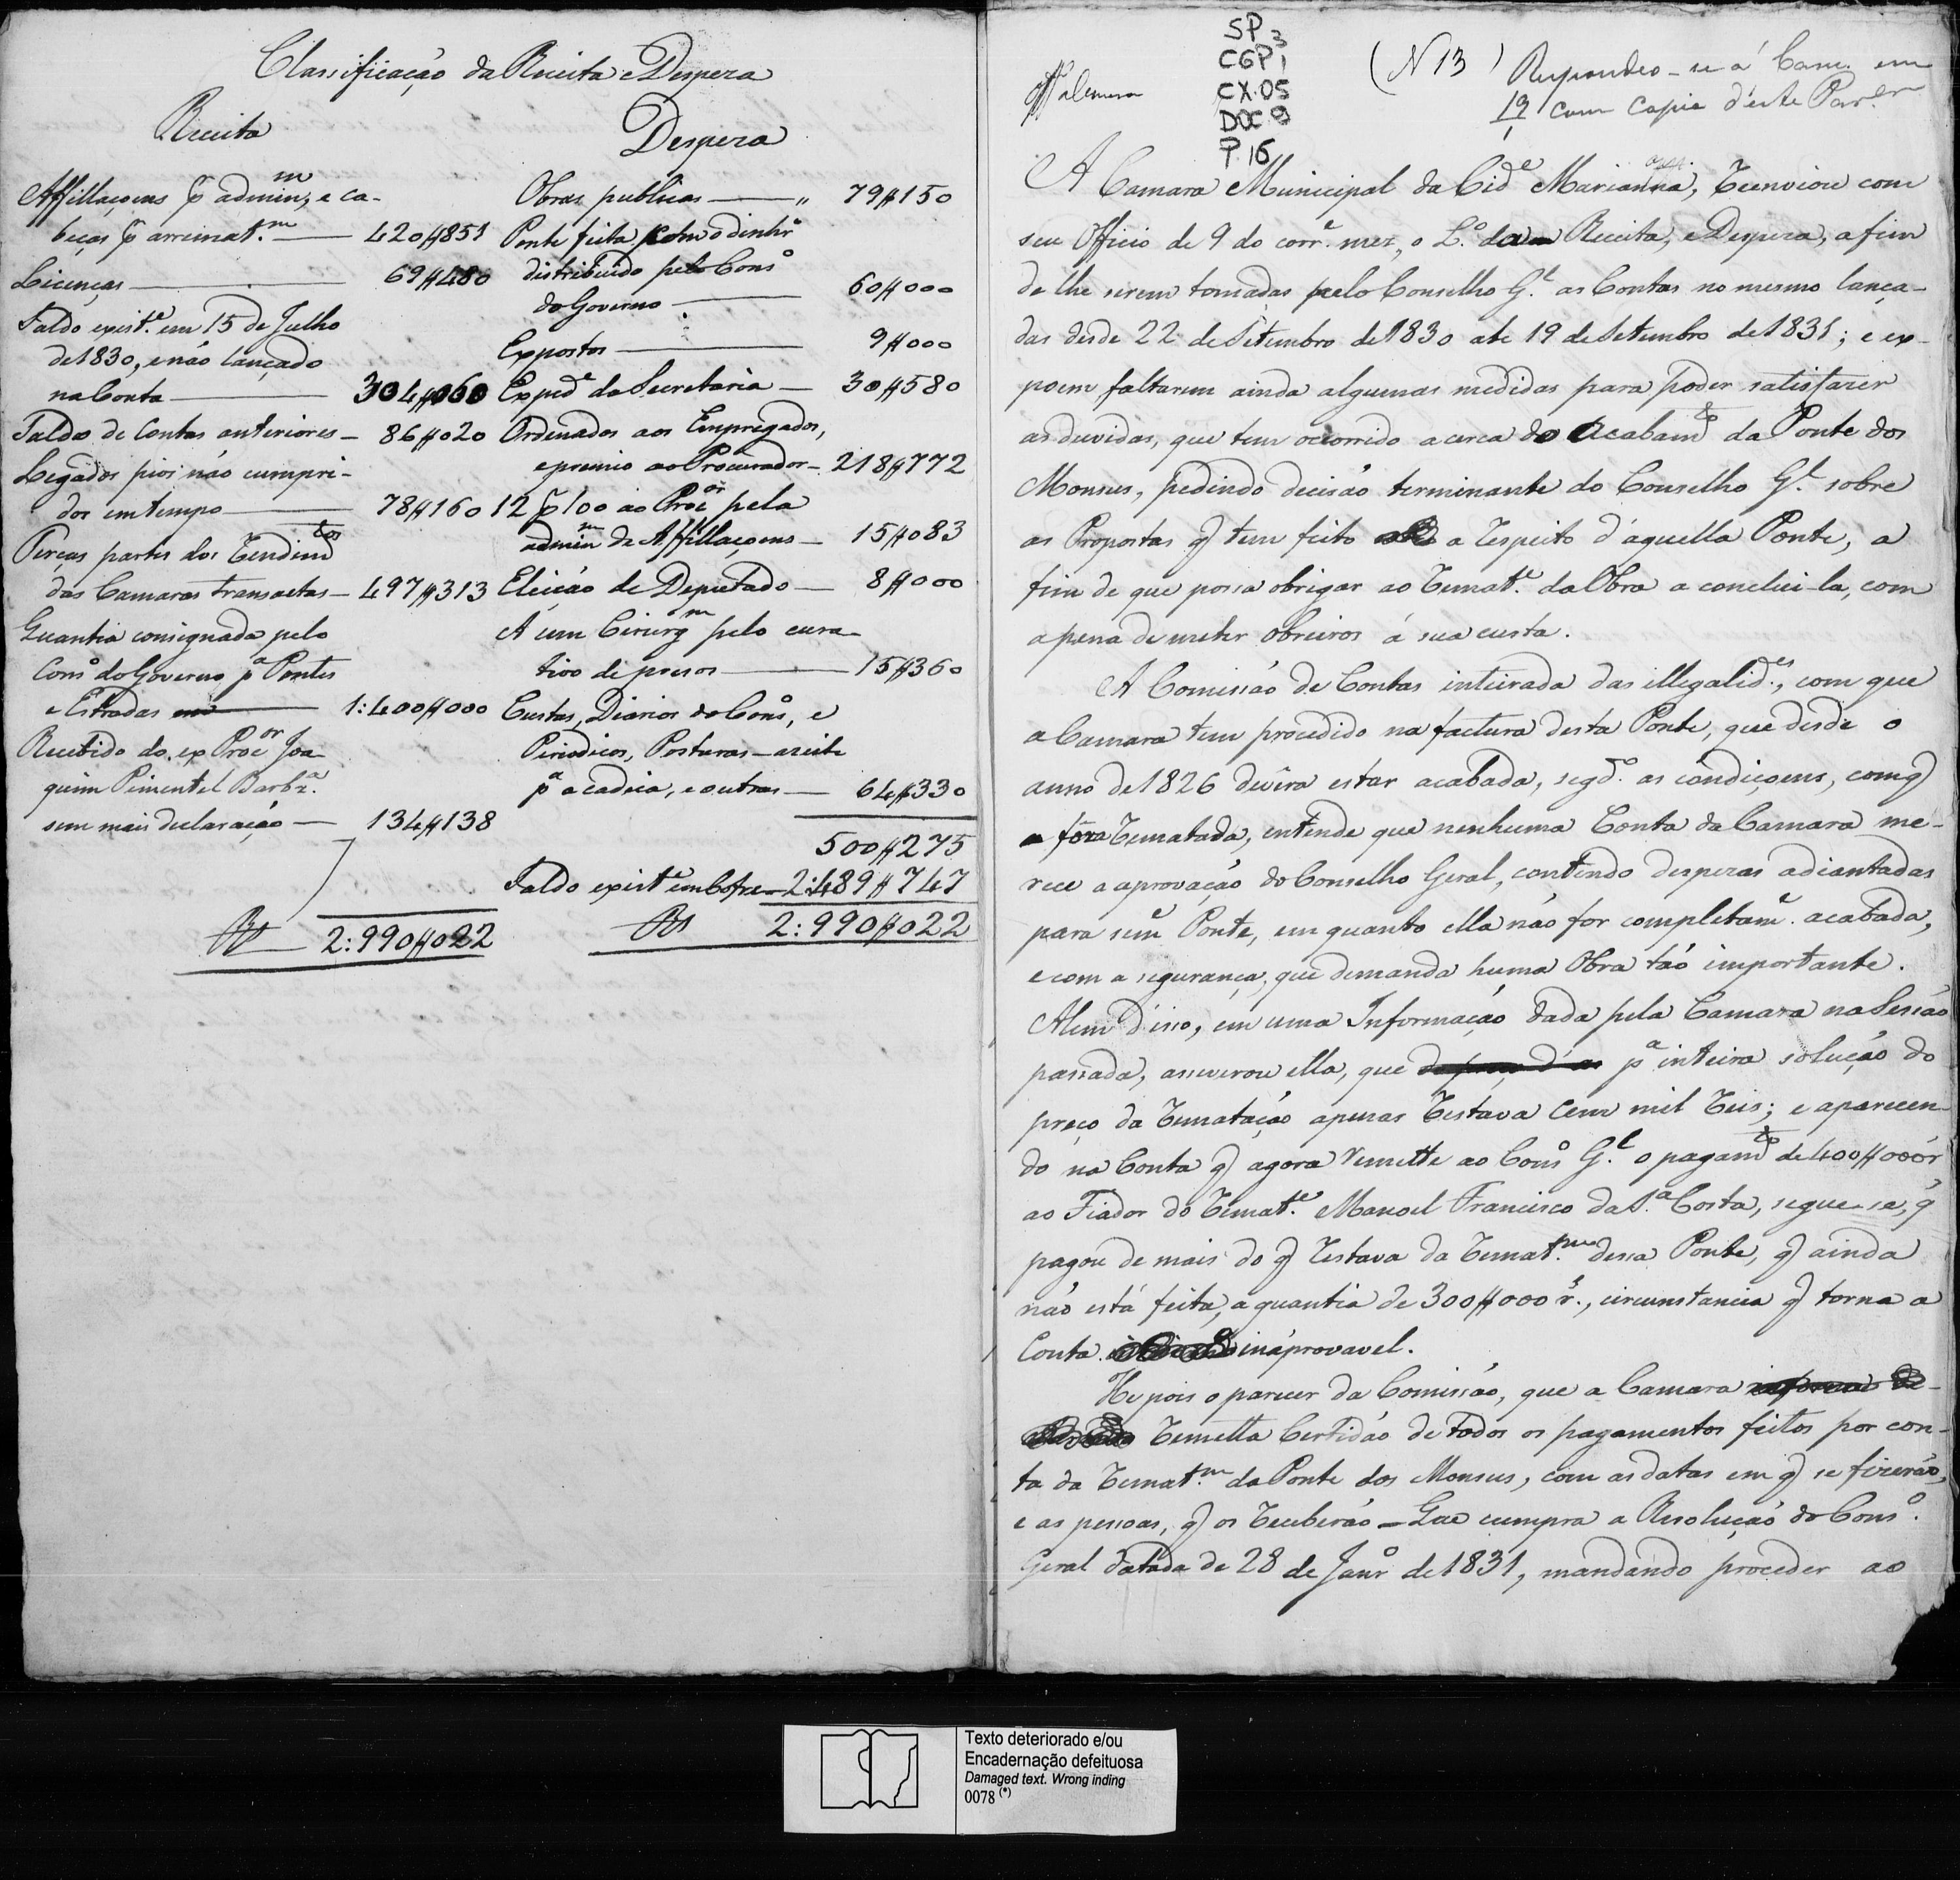 Classificação da Receita e Despeza
Receita
Affillaçoens p admin.m, e ca-
beças p arremat.m — 420$851
Licenças — 69$480
Saldo exist.e em 15 de Julho
de 1830, e não lançado
na Conta — 304$060
Saldo de Contas anteriores — 86$020
Legados pios não cumpri-
dos em tempo — 78$160
Terças partes dos Rendim.tos
das Camaras transactas — 497$313
Quantia consignada pelo
Cons.o do Governo p.a Pontes
e Estradas — 1:400$000
Recebido do ex Proc.or Joa-
quim Pimentel Barb.a
sem mais declaração — 134$138
Rs 2:990$022
Despeza
Obras publicas — " 79$150
Ponte feita com o dinhr.o
distribuido pelo Cons.o
do Governo — 60$000
Expostos — 9$000
Exped.e da Secretaria — 30$580
Ordenados aos Empregados,
e premio ao Procurador — 218$772
12 p 100 ao Proc.or pela
admin.m de Affillaçoens — 15$083
Eleição de Deputado — 8$000
A um Cirurg.m pelo cura-
tivo de presos — 15$360
Custas, Diarios do Cons.o, e
Periodicos, Posturas — azeite
p.a a cadeia, e outras — 64$330
500$275
Saldo exist.e em Cofre — 2:489$747
Rs 2:990$022
SP 3
CGP 1
CX.05
DOC 9
P. 16
(N 13)
Respondeo-se á Cam. em
19 com copia d'este Par.er
A Camara Municipal da Cid.e Marianna, reenviou com
seu Officio de 9 do corr.e mez, o L.o da Receita, e Despeza, a fim
de lhe serem tomadas pelo Conselho G.l as Contas no mesmo lança-
das desde 22 de Setembro de 1830 ate 19 de Setembro de 1831; e ex-
poem faltarem ainda algumas medidas para poder satisfazer
as duvidas, que tem occorrido acerca do Acabam.to da Ponte dos
Monsus, pedindo decisão terminante do Conselho G.l sobre
as Propostas q tem feito a respeito d'aquella Ponte, a
fim de que possa obrigar ao remat.e da Obra a conclui-la, com
a pena de meter obreiros á sua custa.
A Comissão de Contas inteirada das illegalid.es, com que
a Camara tem procedido na factura desta Ponte, que desde o
anno de 1826 devêra estar acabada, segd.o as condiçoens, com q
fôra rematada, entende que nenhuma Conta da Camara me-
rece a aprovação do Conselho Geral, contendo despezas adiantadas
para sem.e Ponte, em quanto ella não for completam.e acabada,
e com a segurança, que demanda huma Obra tão importante.
Alem d'isso, em uma Informação dada pela Camara na Sessão
passada, asseverou ella, que p.a inteira solução do
preço da rematação apenas restava cem mil reis; e aparecen-
do na Conta q agora remette ao Cons.o G.l o pagam.to de 400$000 r.
ao Fiador do remat.e Manoel Francisco da S.a Costa, segue-se, q
pagou de mais do q restava da remat.m dessa Ponte, q ainda
não está feita, a quantia de 300$000 r.s, circunstancia q torna a
Conta inaprovavel.
He pois o parecer da Comissão, que a Camara
remetta Certidão de todos os pagamentos feitos por con-
ta da remat.m da Ponte dos Monsus, com as datas em q se fizerão,
e as pessoas, q os receberão — Que cumpra a Resolução do Cons.o
Geral datada de 28 de Janr.o de 1831, mandando proceder ao
Texto deteriorado e/ou
Encadernação defeituosa
Damaged text. Wrong inding
0078 (*)